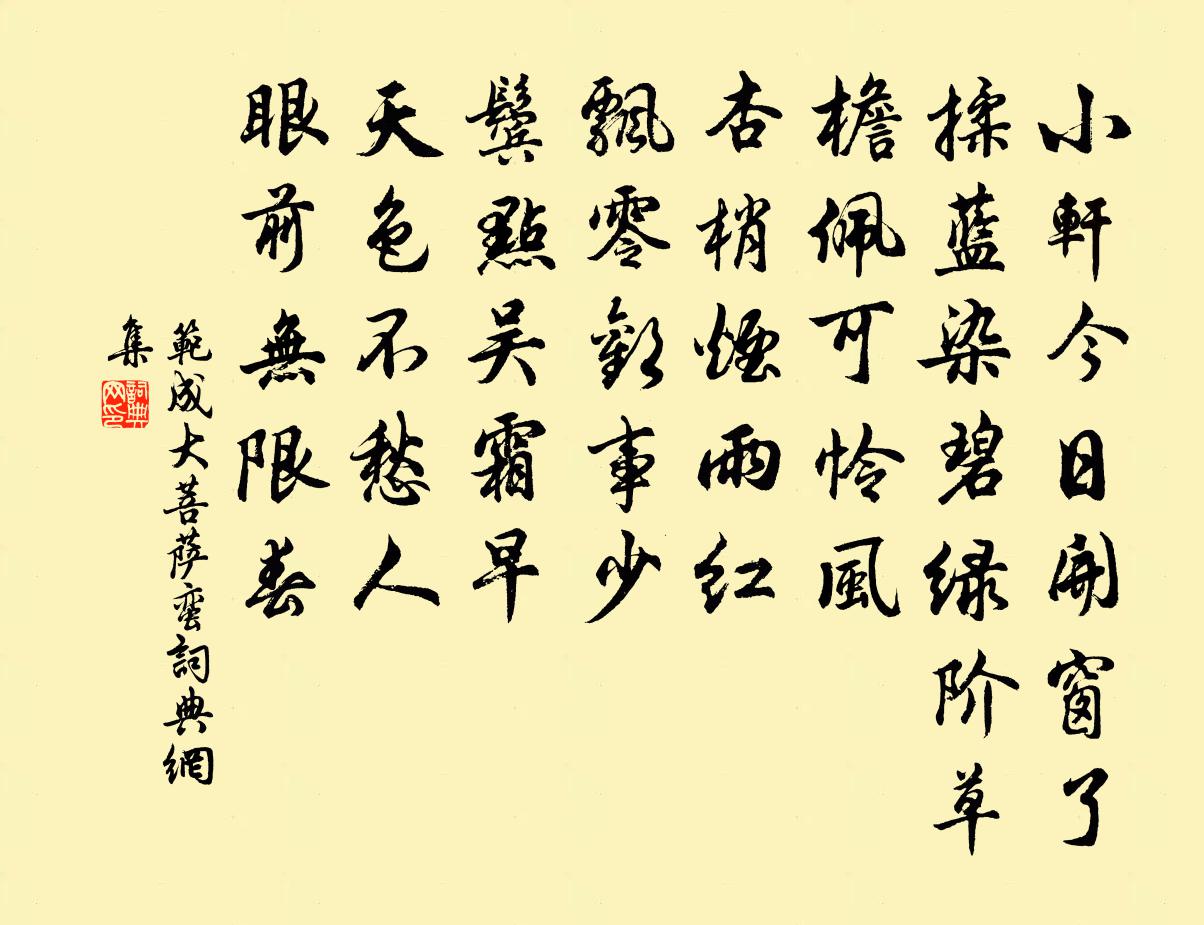 小軒今日開窗了
揉藍染碧緑阶草
檐佩可怜風
杏梢煙雨紅
飄零歡事少
鬢點吴霜早
天色不愁人
眼前無限春
範成大菩萨蛮詞典網
集
詞典网印